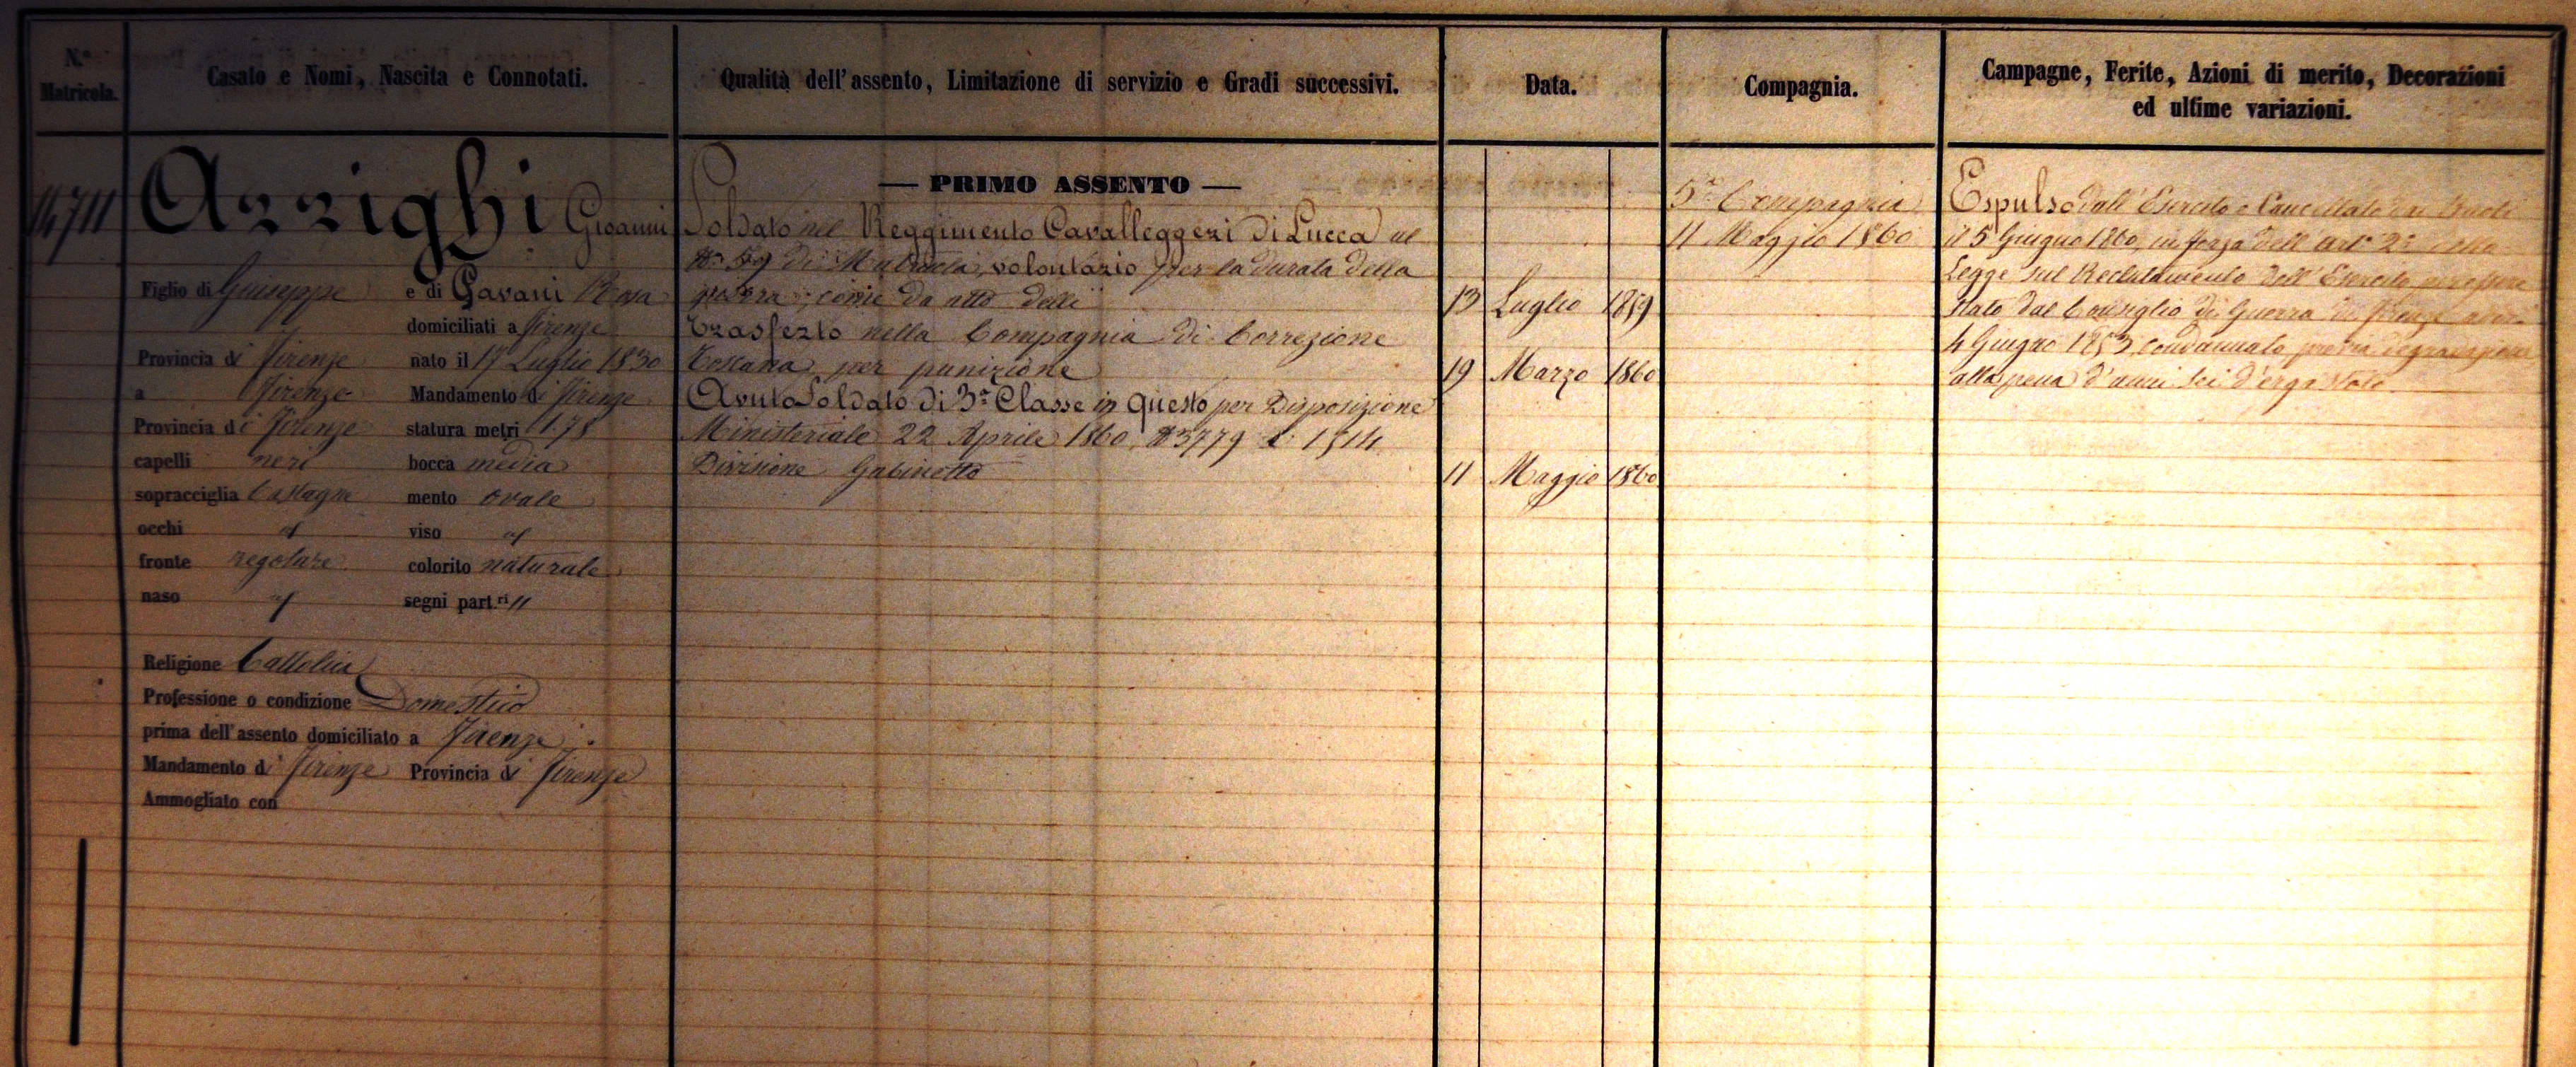 N.º Matricola.
Casato e Nomi, Nascita e Connotati.
Qualità dell'assento, Limitazione di servizio e Gradi successivi.
Data.
Compagnia.
Campagne, Ferite, Azioni di merito, Decorazioni
ed ultime variazioni.
14711
Arrighi Gioanni
Figlio di Giuseppe e di Gavani Rosa
domiciliati a Firenze
Provincia di Firenze nato il 17 Luglio 1830
a Firenze Mandamento di Firenze
Provincia di Firenze statura metri 1.78
capelli neri bocca media
sopracciglia Castagne mento ovale
occhi id viso id
fronte regolare colorito naturale
naso id segni part.ri "
Religione Cattolica
Professione o condizione Domestico
prima dell'assento domiciliato a Firenze
Mandamento di Firenze Provincia di Firenze
Ammogliato con
— PRIMO ASSENTO —
Soldato nel Reggimento Cavalleggeri di Lucca al
Nº 59 di Matricola, volontario per la durata della
guerra, come da atto delli 13 Luglio 1859
Trasferto nella Compagnia di Correzione
Toscana per punizione 19 Marzo 1860
Avuto Soldato di 3ª Classe in questo per Disposizione
Ministeriale 22 Aprile 1860, Nº 3779 e 1514
Divisione Gabinetto 11 Maggio 1860
5ª Compagnia
11 Maggio 1860
Espulso dall'Esercito e Cancellato dai Ruoli
il 5 Giugno 1860, in forza dell'artº 2º della
Legge sul Reclutamento dell'Esercito per essere
stato dal Consiglio di Guerra di Firenze
4 Giugno 1853 condannato previa degradazione
alla pena d'anni sei d'ergastolo